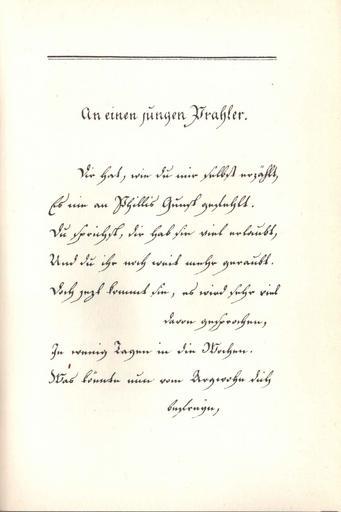 An einen jungen Prahler.
Dir hat, wie du mir selbst erzählt,
Es nie an Phillis Gunst gefehlt.
Du sprichst, dir hab sie viel erlaubt,
Und du ihr noch weit mehr geraubt.
Doch jezt kommt sie, es wird sehr viel
davon gesprochen,
In wenig Tagen in die Wochen.
Was könnte nun vom Argwohn dich
befreyn,